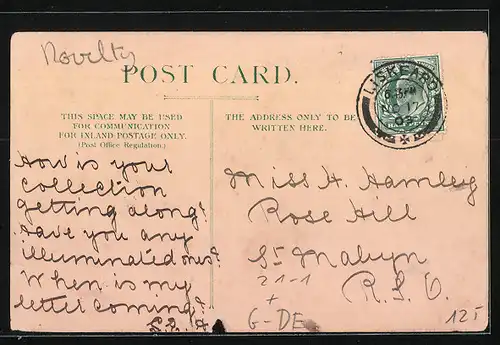 Novelty
POST CARD.
THIS SPACE MAY BE USED
FOR COMMUNICATION
FOR INLAND POSTAGE ONLY.
(Post Office Regulation.)
THE ADDRESS ONLY TO BE
WRITTEN HERE.
LISKEARD
How is your
collection
getting along?
Have you any
illuminated ones?
When is my
letter coming?
Miss H. Hambly
Rose Hill
St Mabyn
R.S.O.
21-1
+
G-DE